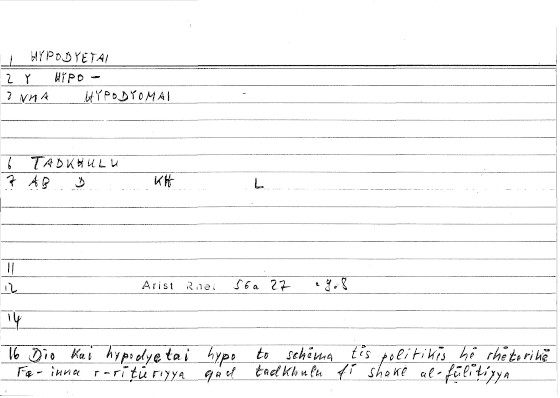 1 HYPODYETAI
2 Y HYPO –
3 VMA HYPODYOMAI
6 TADKHULU
7 AB D KH L
11
12 Arist Rhet 56a 27 9.8
14
16 Dio kai hypodyetai hypo to schēma tīs politikīs hē rhētorikē
Fa-inna r-rīṭūriyya qad tadkhulu fī shakl al-fūlīṭiyya